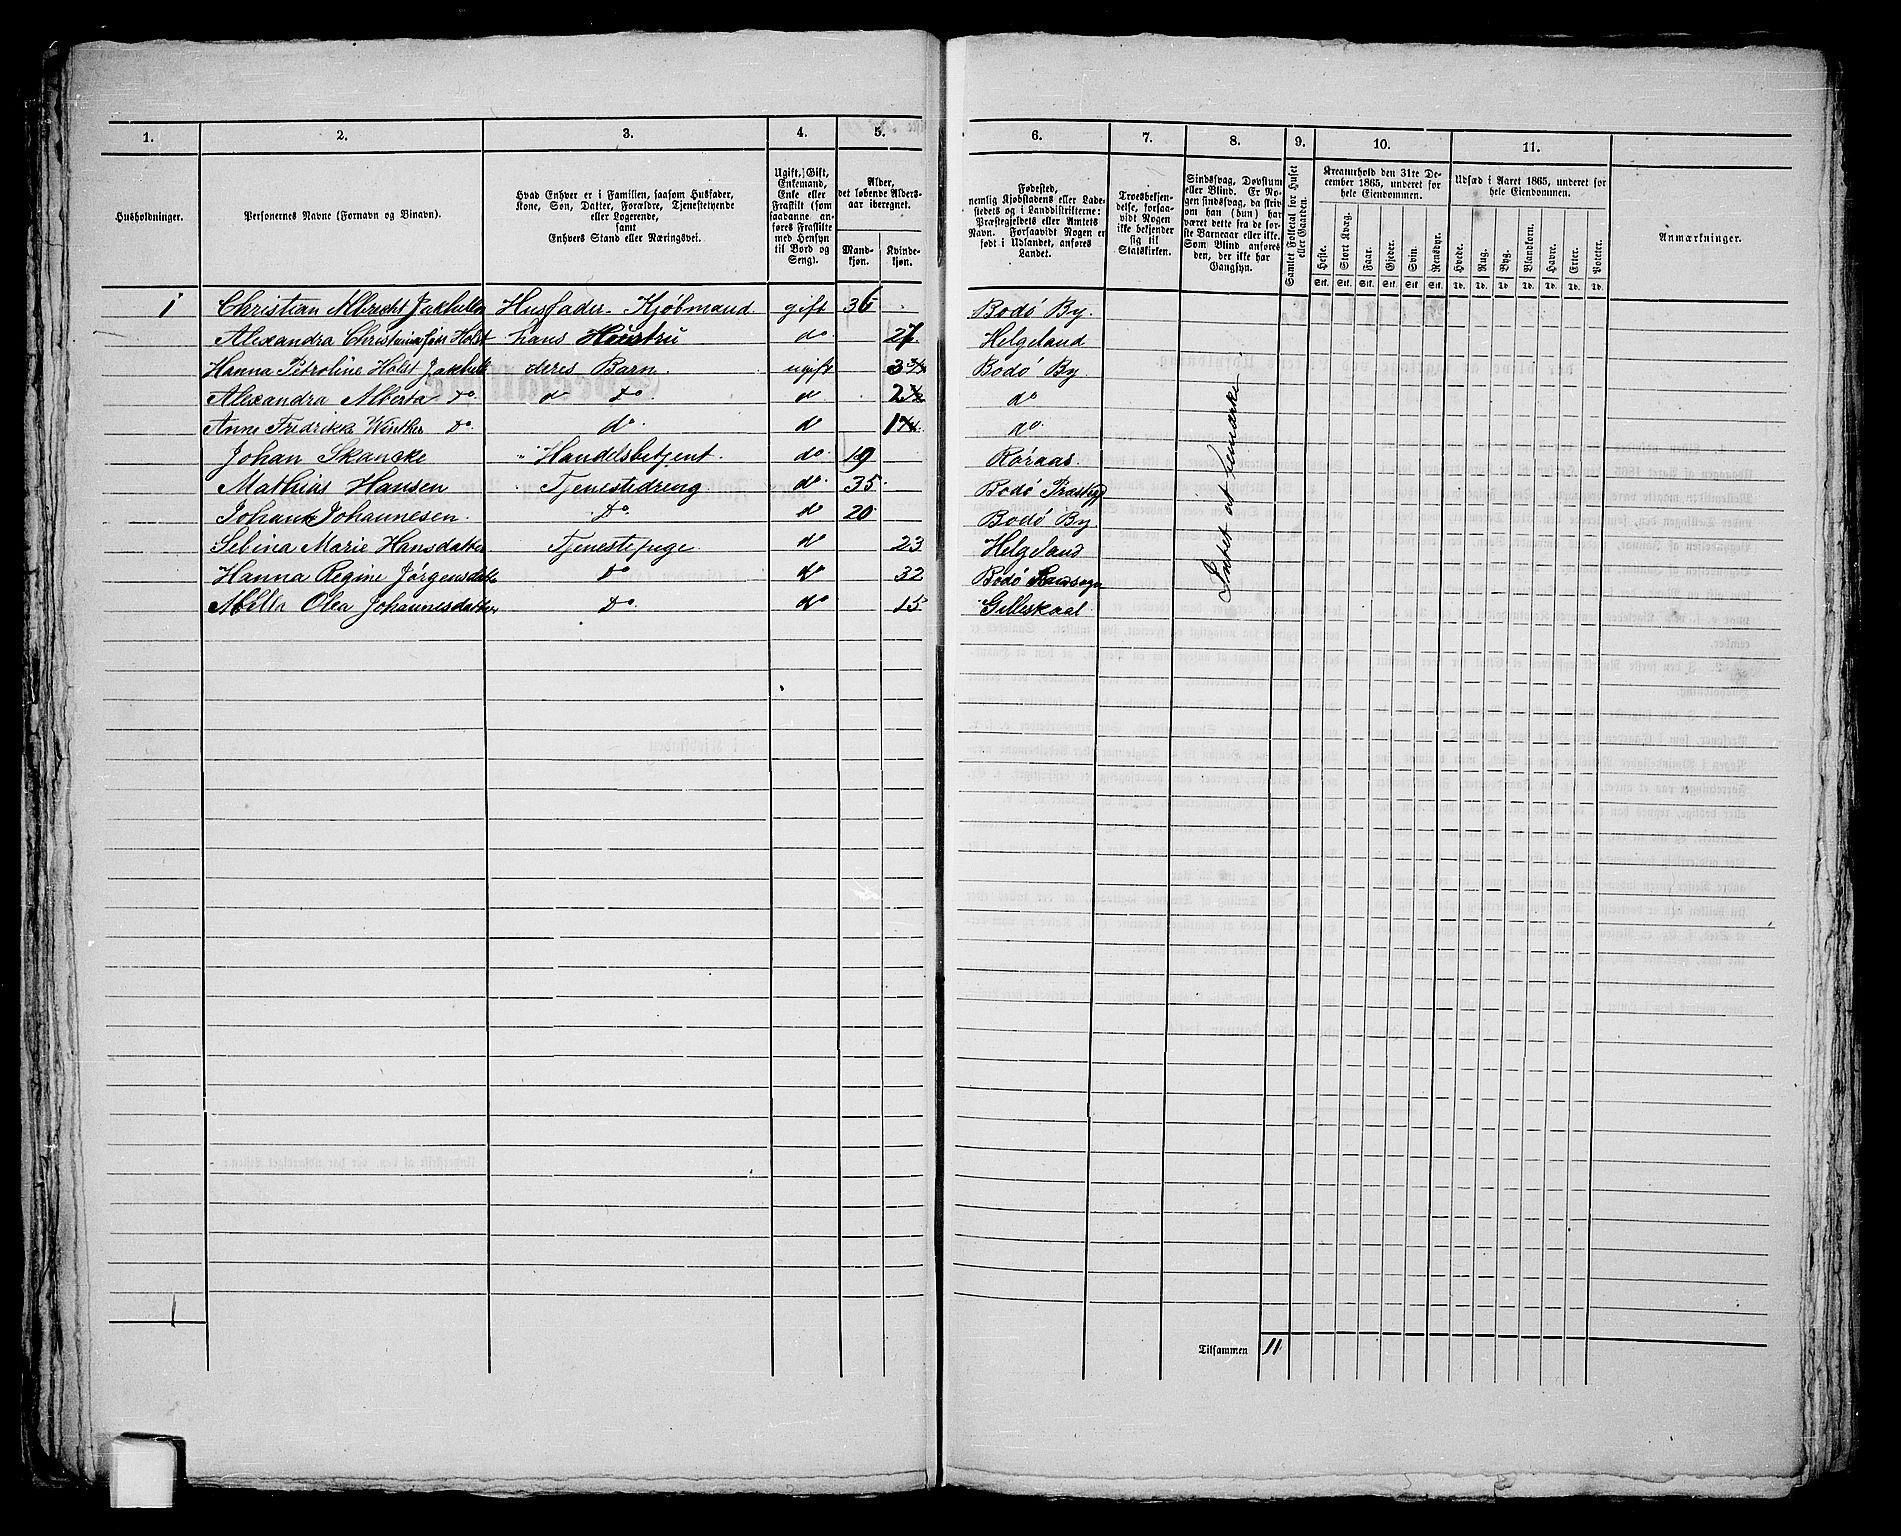 1. 2. 3. 4. 5. 6. 7. 8. 9. 10. 11.
Husholdninger.
Personernes Navne (Fornavn og Binavn).
Hvad Enhver er i Familien, saasom Husfader,
Kone, Søn, Datter, Forældre, Tjenestetyende
eller Logerende,
samt
Enhvers Stand eller Næringsvei.
Ugift, Gift,
Enkemand,
Enke eller
Fraskilt (som
saadanne an-
føres Fraskilte
med Hensyn
til Bord og
Seng).
Alder,
det løbende Alders-
aar iberegnet.
Mand-
kjøn.
Kvinde-
kjøn.
Fødested,
nemlig Kjøbstadens eller Lade-
stedets og i Landdistrikterne:
Præstegjeldets eller Amtets
Navn. Forsaavidt Nogen er
født i Udlandet, anføres
Landet.
Troesbekjen-
delse, forsaa-
vidt Nogen
ikke bekjender
sig til
Statskirken.
Sindssvag, Døvstum
eller Blind. Er No-
gen sindssvag, da skrives
om han (hun) har
været dette fra de før-
ste Barneaar eller ikke.
Som Blind anføres
den, der ikke har
Gangsyn.
Samlet Folketal for Huset
eller Gaarden.
Kreaturhold den 31te De-
cember 1865, underet for
hele Eiendommen.
Heste. Stort Kvæg. Faar. Gjeder. Svin. Rensdyr.
Stk. Stk. Stk. Stk. Stk. Stk.
Udsæd i Aaret 1865, underet for
hele Eiendommen.
Hvede. Rug. Byg. Blandkorn. Havre. Erter. Poteter.
Td. Td. Td. Td. Td. Td. Td.
Anmærkninger.
1 Christian Albrecht Jakhelln Husfader. Kjøbmand gift 36 Bodö By.
Alexandra Christina før Holst hans Houstru do 27. Helgeland
Hanna Petroline Holst Jakhell deres Barn. ugift 3 3/4 Bodö By
Alexandra Alberta Do d Do d 2 3/4 do
Anne Fredrikke Winther Do. do do 1 4/4 do
Johan Skancke Handelsbetjent. do 19 Röraas.
Mathias Hansen Tjenestedreng do 35 Bodö Præstegj
Johan Johannesen. Do do 20 Bodö By
Sebina Marie Hansdatter Tjenestepige do 23 Helgeland
Hanna Regine Jørgensdatter Do do 32 Bodö Landsogn
Milla Olea Johannesdatter Do do 15 Gilleskaal
Intet at bemærke
1
Tilsammen 11